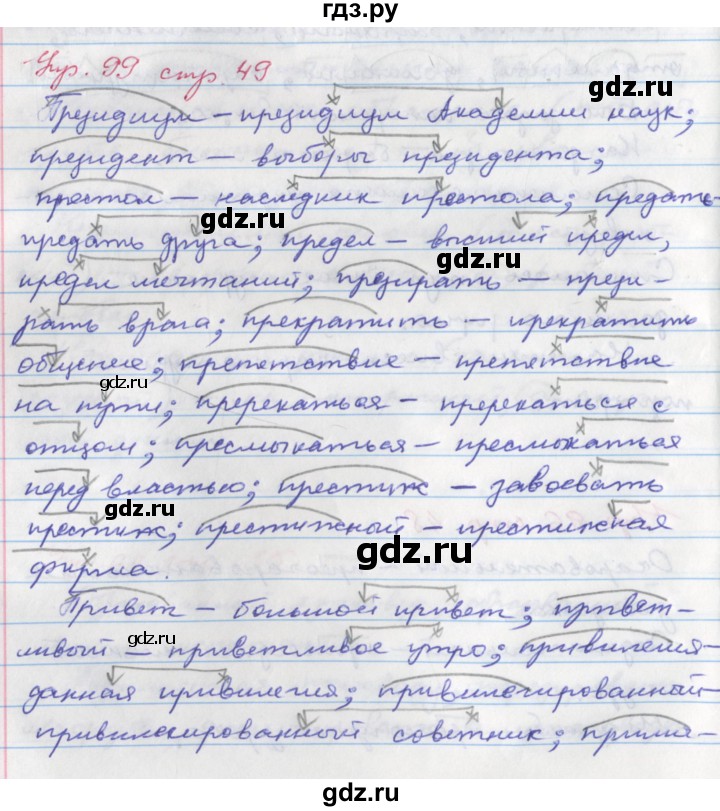 гдз.ру
Упр. 99 стр. 49
Президиум – президиум Академии наук;
gdz.ru
президент – выборы президента;
престол – наследник престола; предать-
gdz.ru
предать друга; предел – высший предел,
предел мечтаний; презирать – прези-
gdz.ru
рать врага; прекратить – прекратить
общение; препятствие – препятствие
gdz.ru
на пути; пререкаться – пререкаться с
отцом; пресмыкаться – пресмыкаться
перед властью; престиж – завоевать
престиж; престижный – престижная
gdz.ru
фирма.
Привет – большой привет; привет-
gdz.ru
ливый – приветливое утро; привилегия-
данная привилегия; привилегированный-
gdz.ru
привилегированный советник; прими-